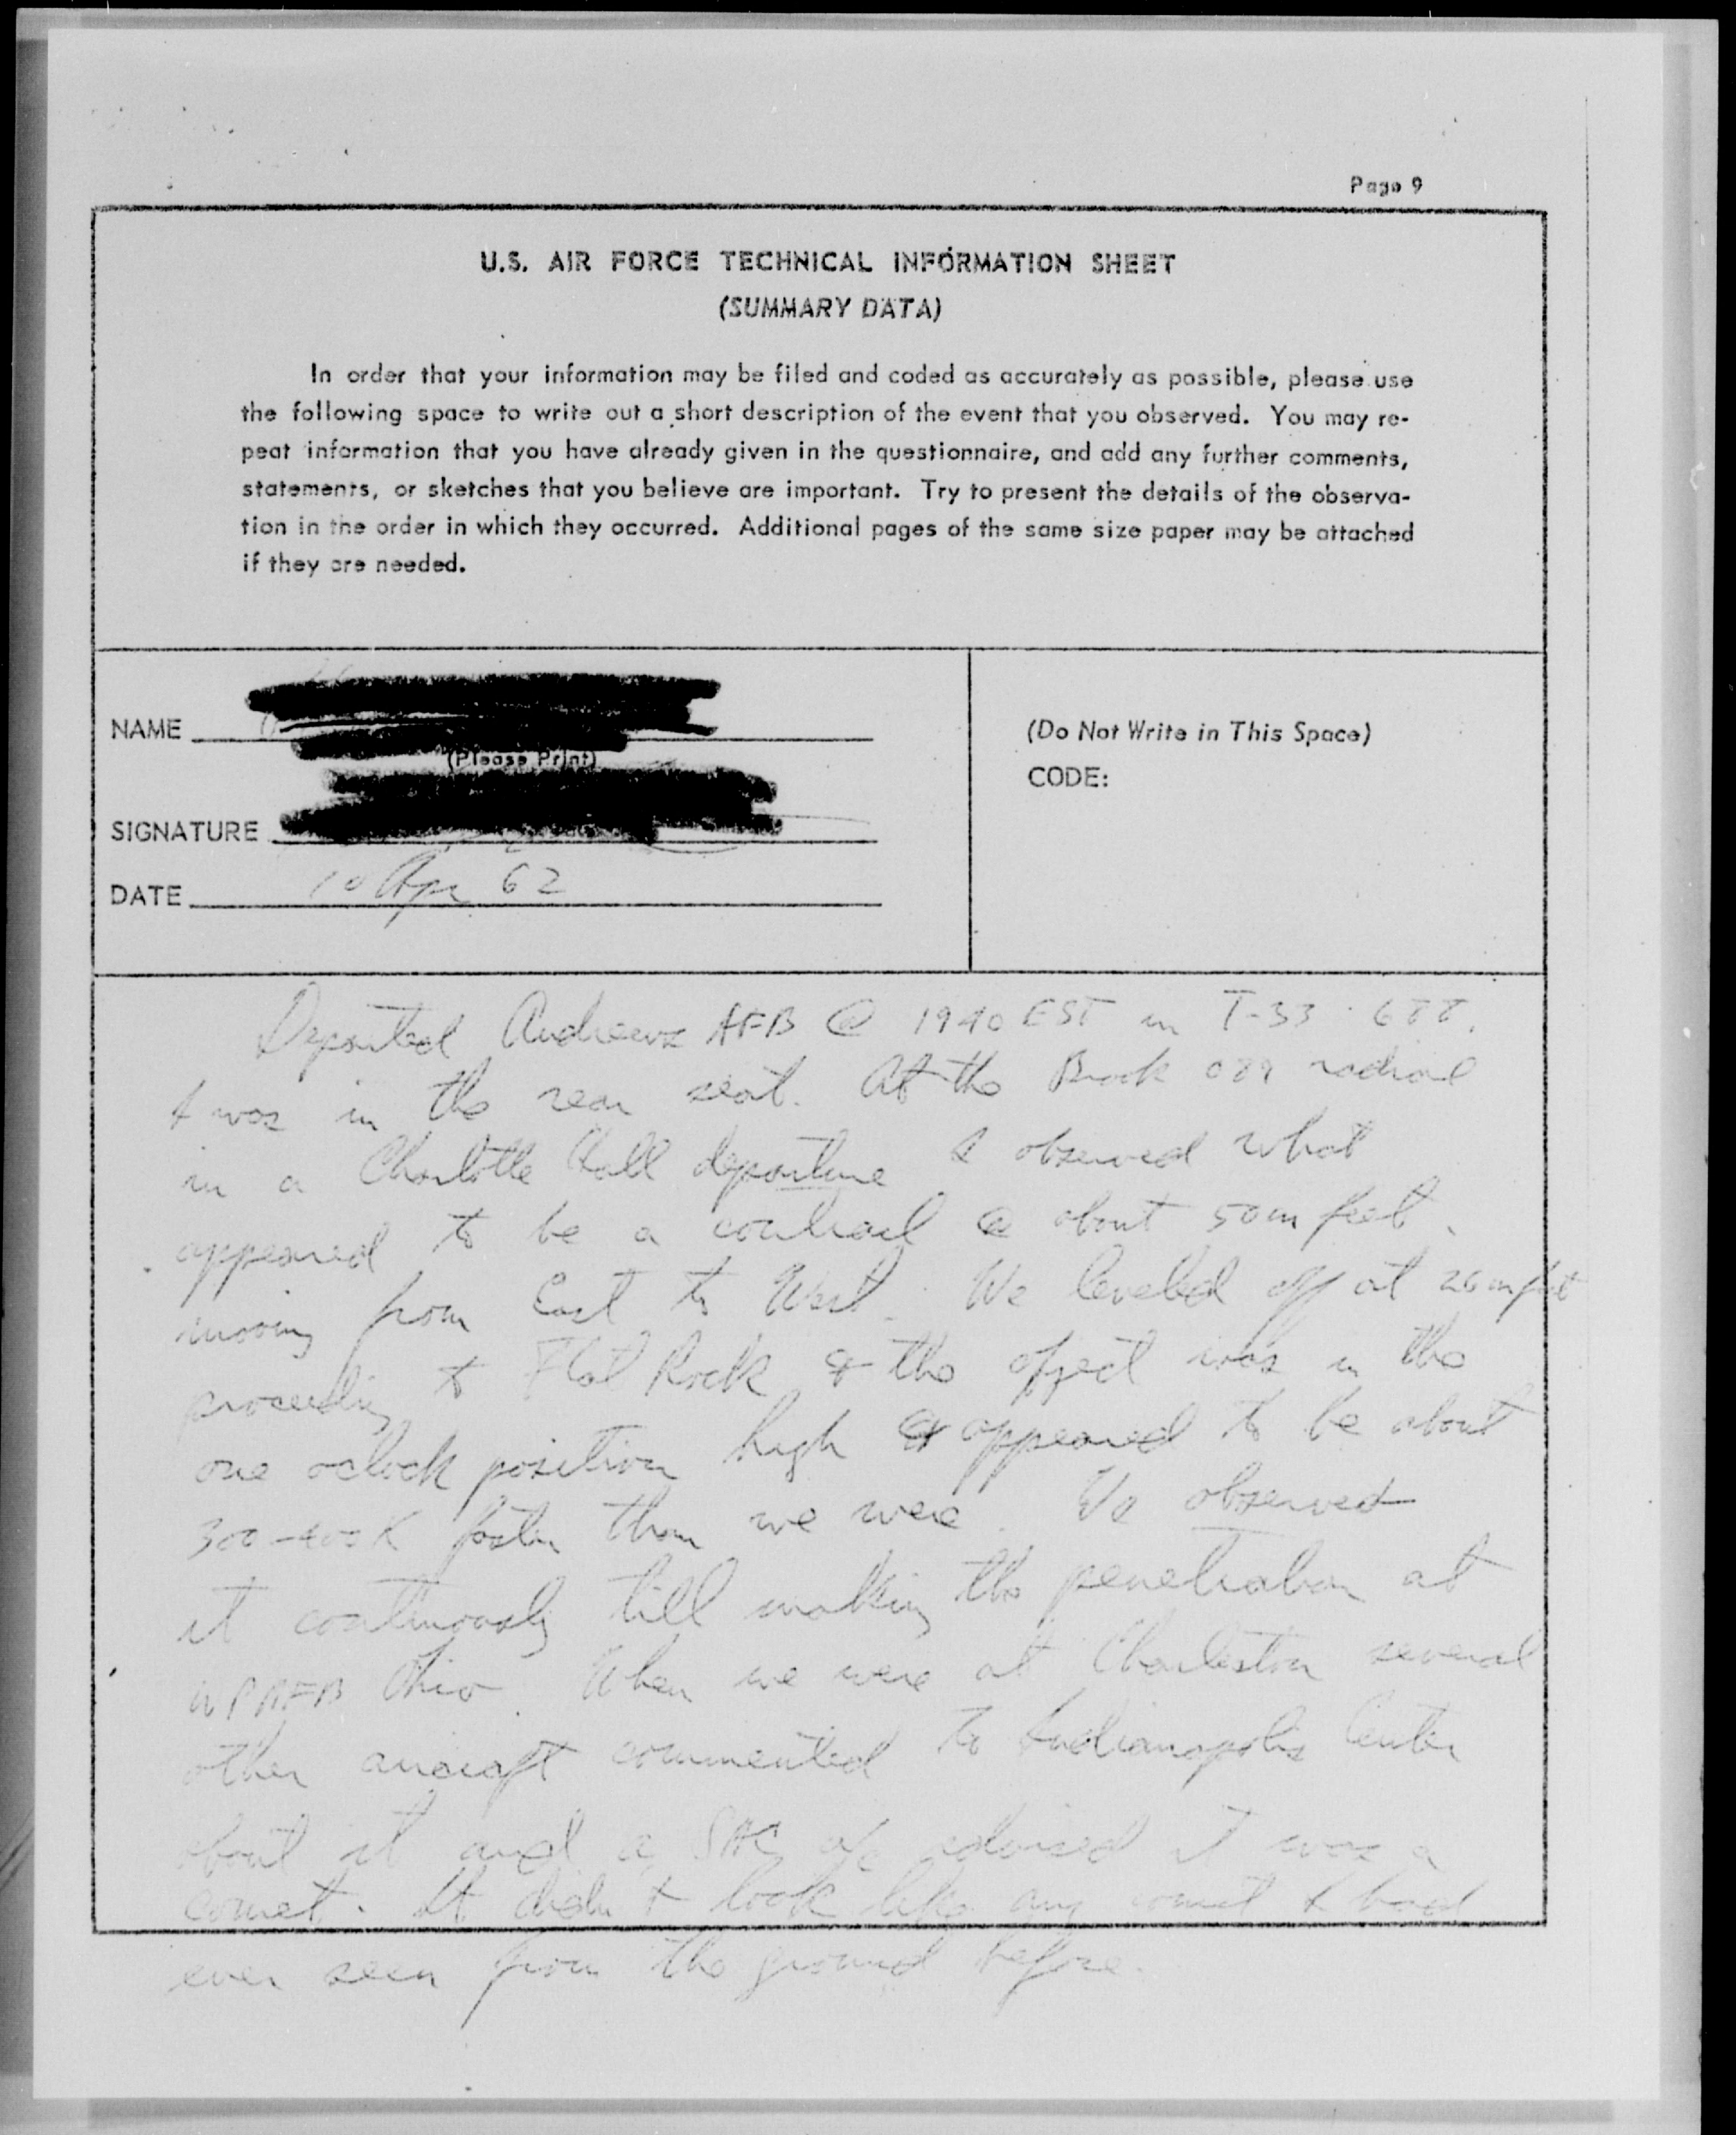 Page 9
U.S. AIR FORCE TECHNICAL INFORMATION SHEET
(SUMMARY DATA)
In order that your information may be filed and coded as accurately as possible, please use
the following space to write out a short description of the event that you observed. You may re-
peat information that you have already given in the questionnaire, and add any further comments,
statements, or sketches that you believe are important. Try to present the details of the observa-
tion in the order in which they occurred. Additional pages of the same size paper may be attached
if they are needed.
NAME
(Please Print)
SIGNATURE
DATE 10 Apr 62
(Do Not Write in This Space)
CODE:
Departed Andrews AFB @ 1940 EST in T-33
I was in the rear seat. At the Brook radial
in a Charlotte Hall departure I observed what
appeared to be a contrail @ about 50m feet
moving from East to West. We leveled off at 26m feet
proceeding to Flat Rock & the object was in the
one oclock position high & appeared to be about
300-400K faster than we were. We observed
it continuously till making the penetration at
WPAFB Ohio. When we were at Charleston several
other aircraft commented to Indianapolis Center
about it and a SAC a/c advised it was a
comet. It didn't look like any comet I had
ever seen from the ground before.